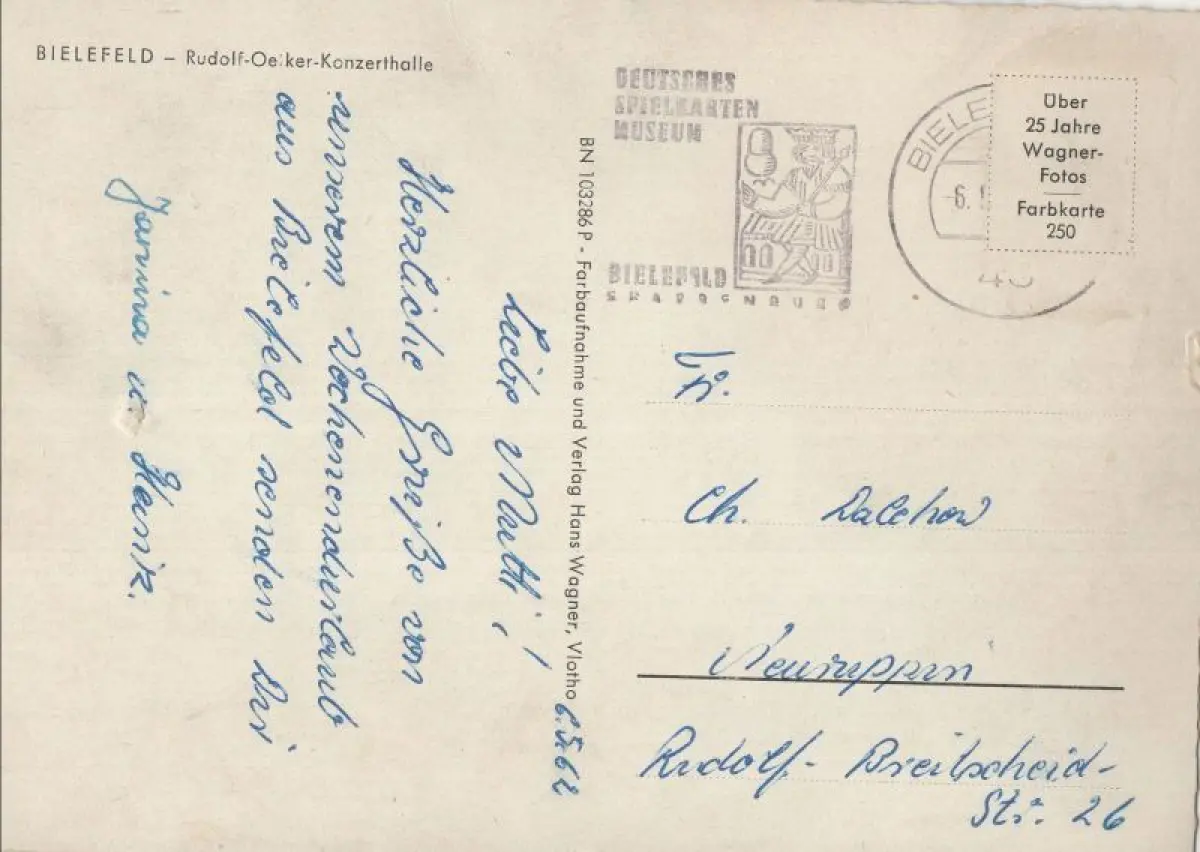 BIELEFELD – Rudolf-Oetker-Konzerthalle
6.5.62
Liebe Mutti,!
Herzliche Grüße von
unserem Wochenendurlaub
aus Bielefeld senden Dir
Jannina u. Heinz.
BN 103286 P - Farbaufnahme und Verlag Hans Wagner, Vlotho
DEUTSCHES
SPIELKARTEN
MUSEUM
BIELEFELD
SPARRENBURG
BIELE
-6.
48
Über
25 Jahre
Wagner-
Fotos
Farbkarte
250
Fr.
Ch. Dalchow
Neuruppin
Rudolf-Breitscheid-
Str. 26